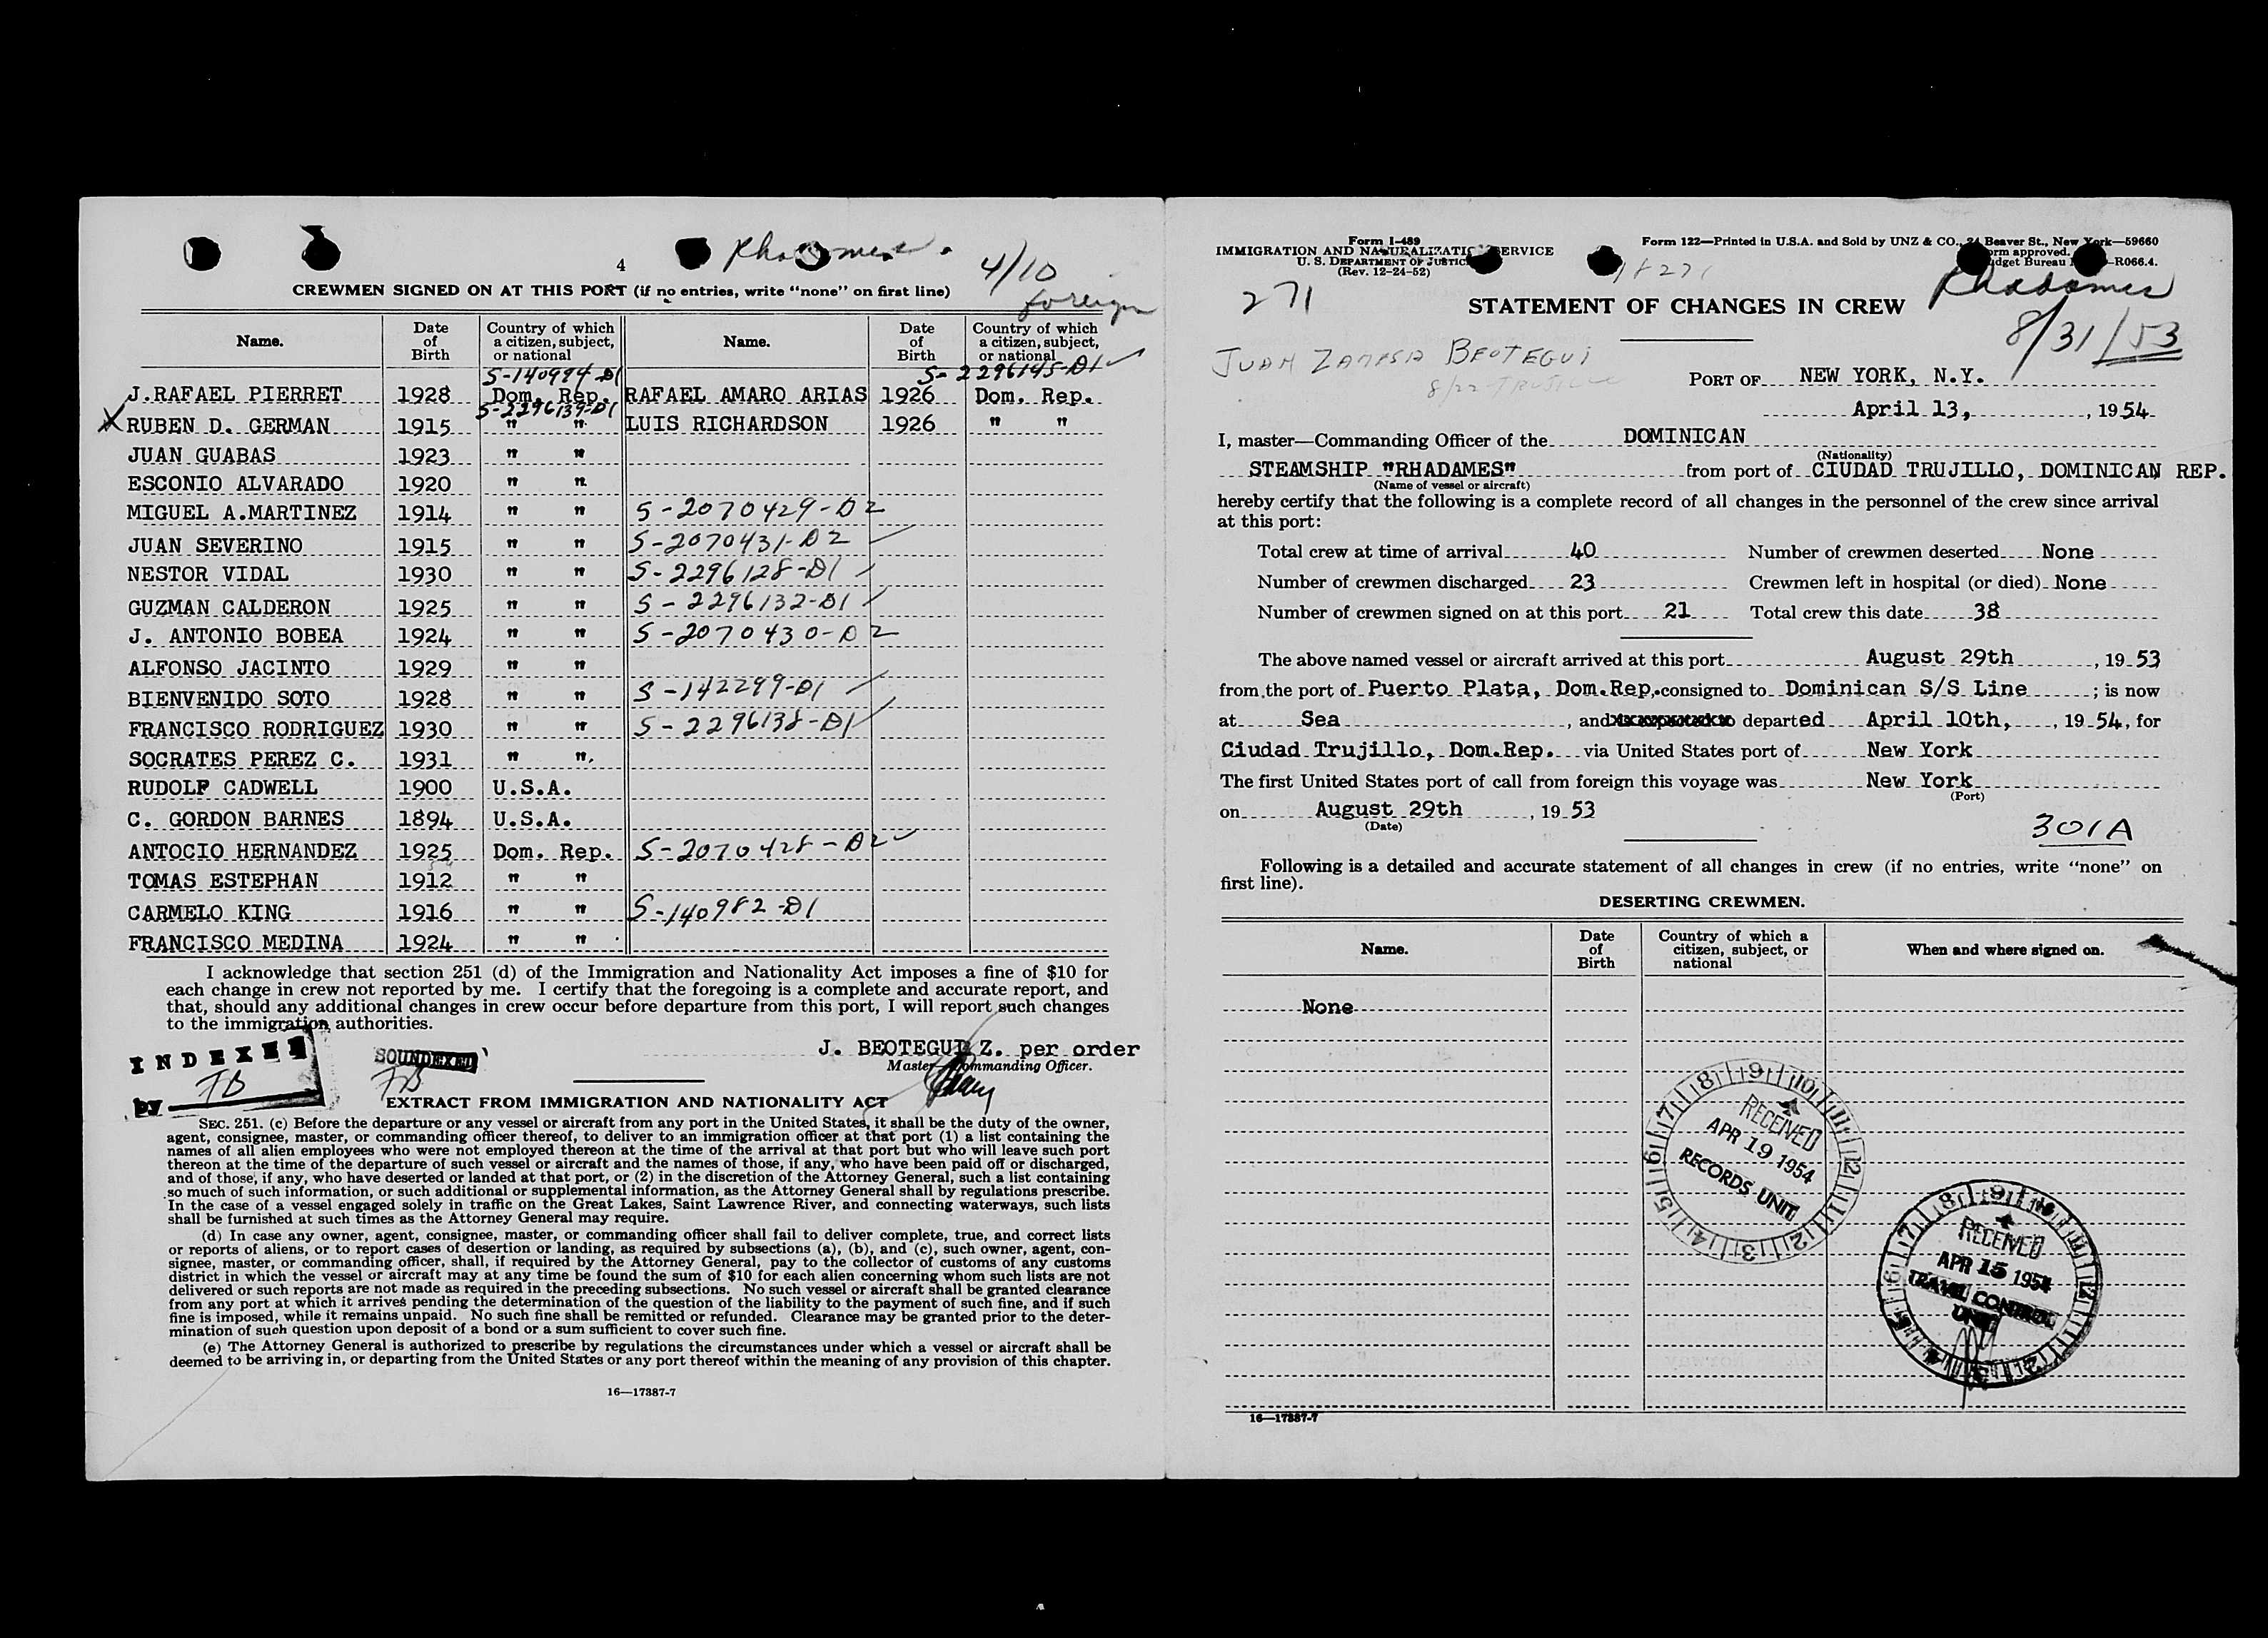 Rhadames.
4/10
foreign
4
CREWMEN SIGNED ON AT THIS PORT (if no entries, write "none" on first line)
Name. Date of Birth Country of which a citizen, subject, or national Name. Date of Birth Country of which a citizen, subject, or national
S-140994-D1 S-2296145-D1
J.RAFAEL PIERRET 1928 Dom. Rep. RAFAEL AMARO ARIAS 1926 Dom. Rep.
S-2296139-D1
X RUBEN D. GERMAN 1915 " " LUIS RICHARDSON 1926 " "
JUAN GUABAS 1923 " "
ESCONIO ALVARADO 1920 " "
MIGUEL A.MARTINEZ 1914 " " S-2070429-D2
JUAN SEVERINO 1915 " " S-2070431-D2
NESTOR VIDAL 1930 " " S-2296128-D1
GUZMAN CALDERON 1925 " " S-2296132-D1
J. ANTONIO BOBEA 1924 " " S-2070430-D2
ALFONSO JACINTO 1929 " "
BIENVENIDO SOTO 1928 " " S-142299-D1
FRANCISCO RODRIGUEZ 1930 " " S-2296138-D1
SOCRATES PEREZ C. 1931 " "
RUDOLF CADWELL 1900 U.S.A.
C. GORDON BARNES 1894 U.S.A.
ANTOCIO HERNANDEZ 1925 Dom. Rep. S-2070428-D2
TOMAS ESTEPHAN 1912 " "
CARMELO KING 1916 " " S-140982-D1
FRANCISCO MEDINA 1924 " "
I acknowledge that section 251 (d) of the Immigration and Nationality Act imposes a fine of $10 for
each change in crew not reported by me. I certify that the foregoing is a complete and accurate report, and
that, should any additional changes in crew occur before departure from this port, I will report such changes
to the immigration authorities.
INDEXED
by TB
SOUNDEXED
TB
J. BEOTEGUI Z. per order
Master—Commanding Officer.
EXTRACT FROM IMMIGRATION AND NATIONALITY ACT
SEC. 251. (c) Before the departure or any vessel or aircraft from any port in the United States, it shall be the duty of the owner,
agent, consignee, master, or commanding officer thereof, to deliver to an immigration officer at that port (1) a list containing the
names of all alien employees who were not employed thereon at the time of the arrival at that port but who will leave such port
thereon at the time of the departure of such vessel or aircraft and the names of those, if any, who have been paid off or discharged,
and of those, if any, who have deserted or landed at that port, or (2) in the discretion of the Attorney General, such a list containing
so much of such information, or such additional or supplemental information, as the Attorney General shall by regulations prescribe.
In the case of a vessel engaged solely in traffic on the Great Lakes, Saint Lawrence River, and connecting waterways, such lists
shall be furnished at such times as the Attorney General may require.
(d) In case any owner, agent, consignee, master, or commanding officer shall fail to deliver complete, true, and correct lists
or reports of aliens, or to report cases of desertion or landing, as required by subsections (a), (b), and (c), such owner, agent, con-
signee, master, or commanding officer, shall, if required by the Attorney General, pay to the collector of customs of any customs
district in which the vessel or aircraft may at any time be found the sum of $10 for each alien concerning whom such lists are not
delivered or such reports are not made as required in the preceding subsections. No such vessel or aircraft shall be granted clearance
from any port at which it arrives pending the determination of the question of the liability to the payment of such fine, and if such
fine is imposed, while it remains unpaid. No such fine shall be remitted or refunded. Clearance may be granted prior to the deter-
mination of such question upon deposit of a bond or a sum sufficient to cover such fine.
(e) The Attorney General is authorized to prescribe by regulations the circumstances under which a vessel or aircraft shall be
deemed to be arriving in, or departing from the United States or any port thereof within the meaning of any provision of this chapter.
16—17887-7
Form I-489
IMMIGRATION AND NATURALIZATION SERVICE
U. S. DEPARTMENT OF JUSTICE
(Rev. 12-24-52)
Form 122—Printed in U.S.A. and Sold by UNZ & CO., 24 Beaver St., New York—59660
Form approved.
Budget Bureau -R066.4.
271
18271
Rhadames
8/31/53
STATEMENT OF CHANGES IN CREW
JUAN BEOTEGUI
8/22 TRUJILLO
PORT OF NEW YORK, N.Y.
April 13, , 1954
I, master—Commanding Officer of the DOMINICAN
(Nationality)
STEAMSHIP "RHADAMES" from port of CIUDAD TRUJILLO, DOMINICAN REP.
(Name of vessel or aircraft)
hereby certify that the following is a complete record of all changes in the personnel of the crew since arrival
at this port:
Total crew at time of arrival 40 Number of crewmen deserted None
Number of crewmen discharged 23 Crewmen left in hospital (or died) None
Number of crewmen signed on at this port 21 Total crew this date 38
The above named vessel or aircraft arrived at this port August 29th , 19 53
from the port of Puerto Plata, Dom.Rep. consigned to Dominican S/S Line ; is now
at Sea , and departed April 10th, , 19 54, for
Ciudad Trujillo, Dom.Rep. via United States port of New York
The first United States port of call from foreign this voyage was New York
(Port)
on August 29th , 19 53
(Date)
301A
Following is a detailed and accurate statement of all changes in crew (if no entries, write "none" on
first line).
DESERTING CREWMEN.
Name. Date of Birth Country of which a citizen, subject, or national When and where signed on.
None
RECEIVED
APR 19 1954
RECORDS UNIT
RECEIVED
APR 15 1954
TRAVEL CONTROL
UNIT
16—17887-7